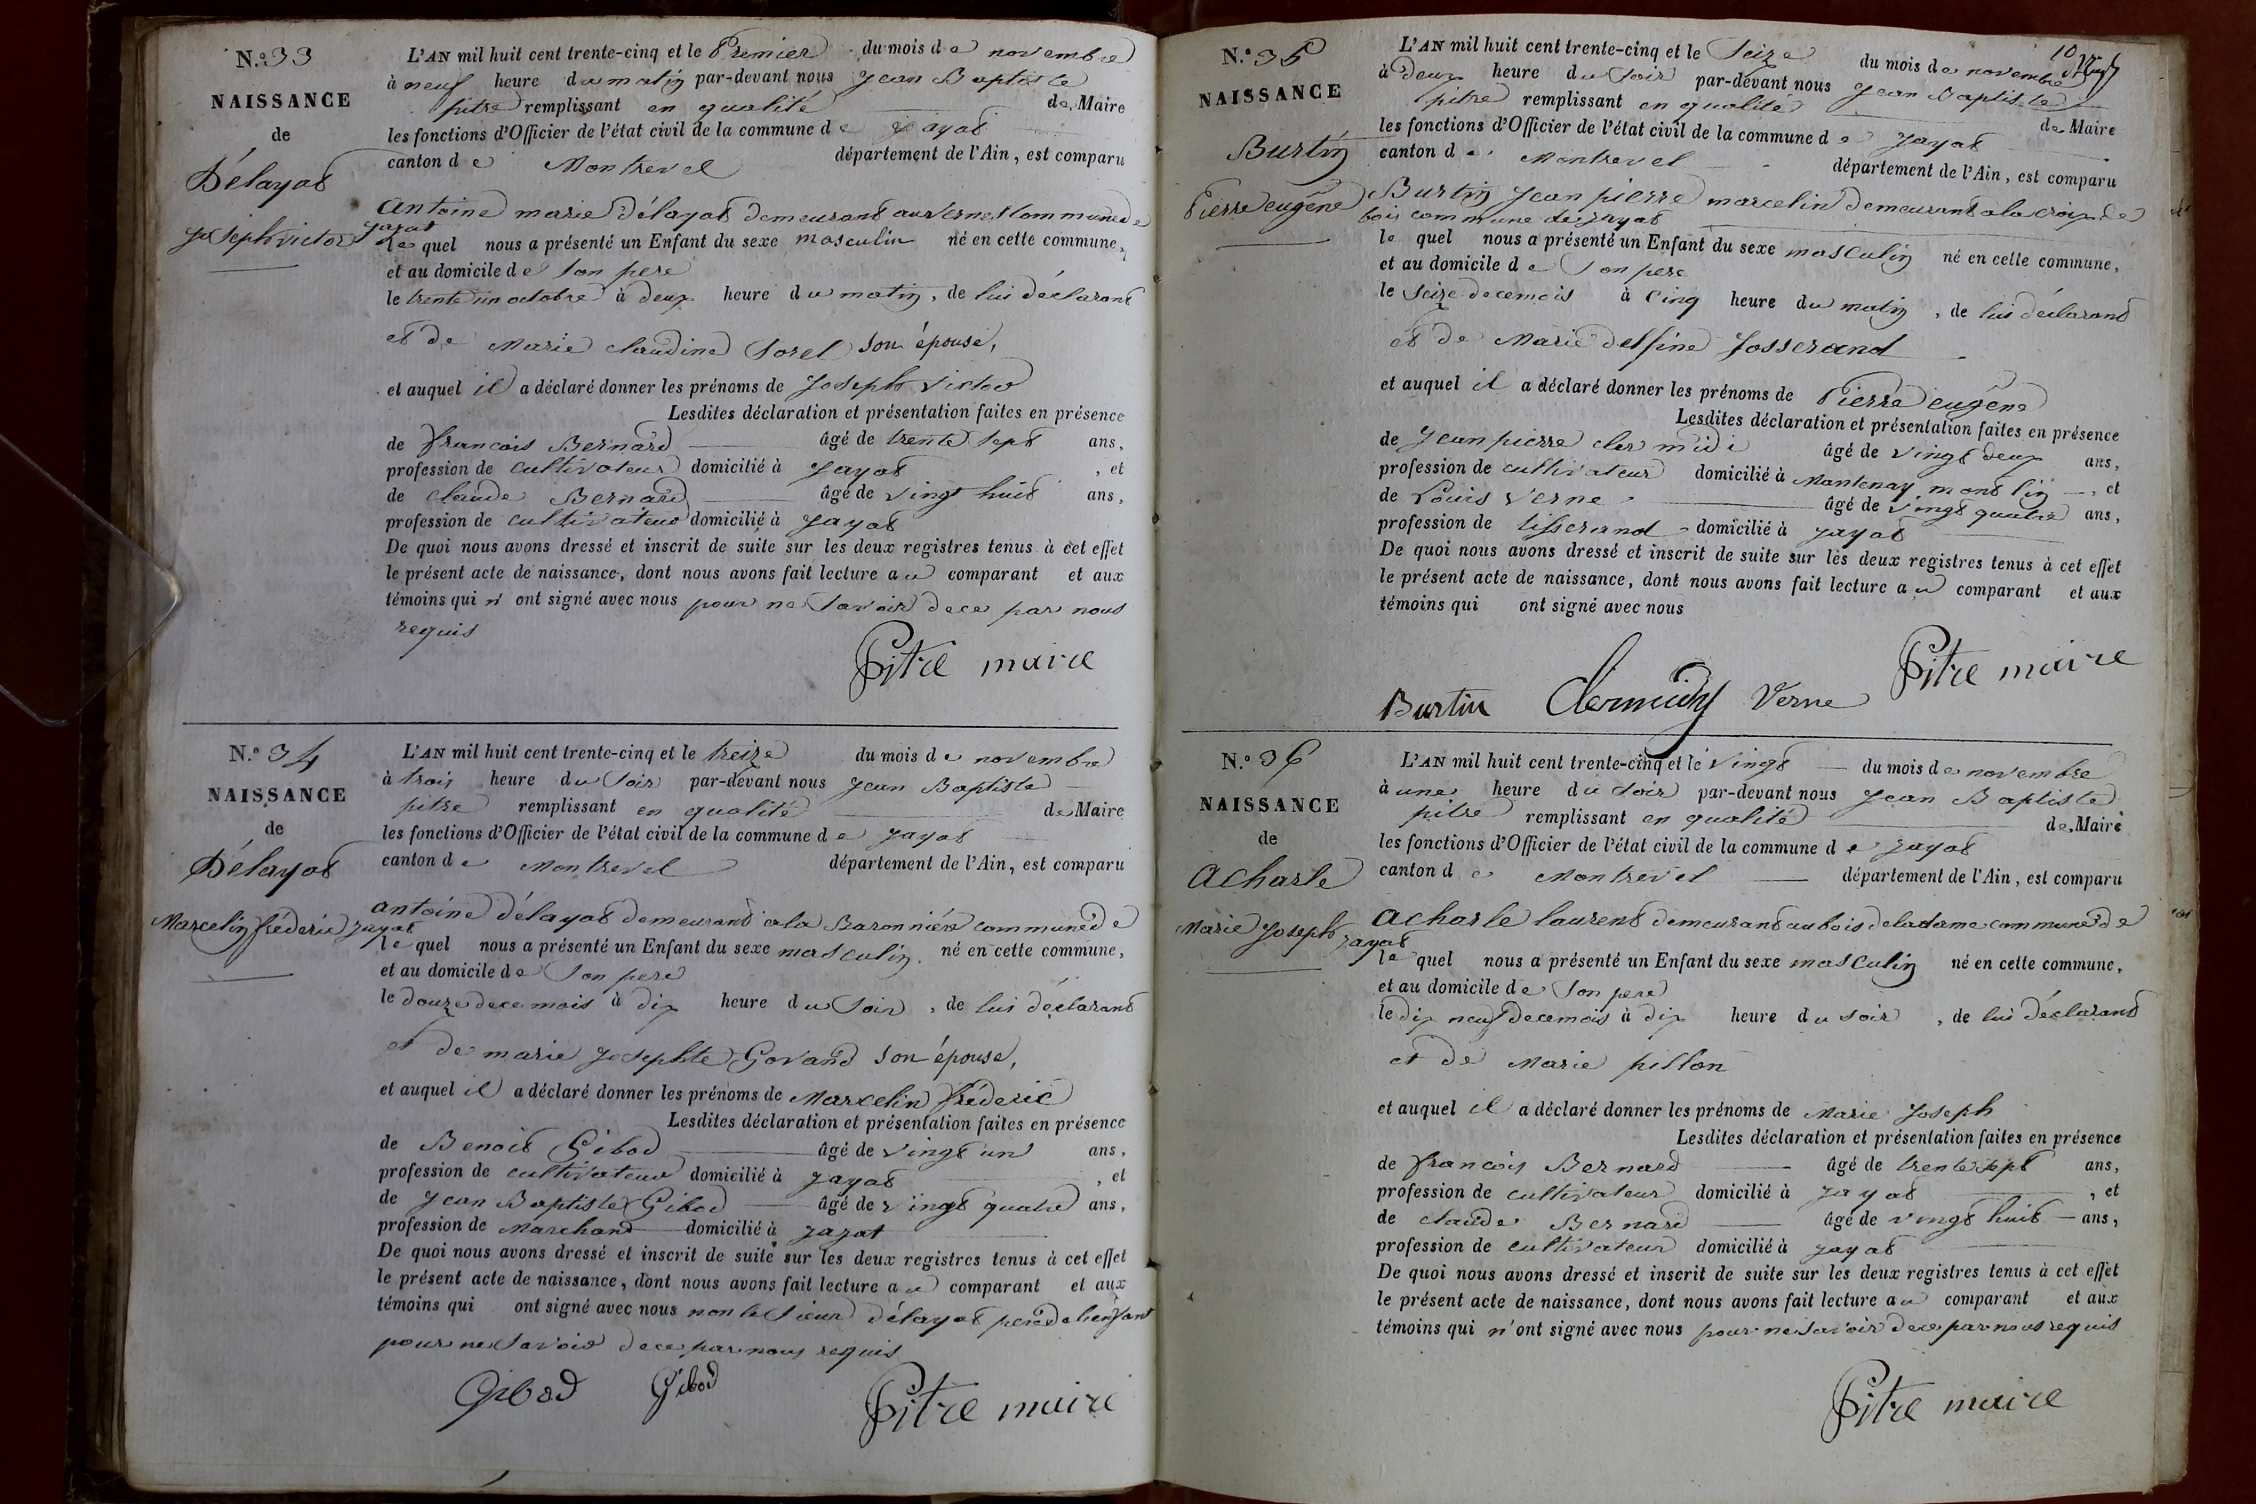 N.o 33
NAISSANCE
de
Délayat
Joseph victor
L'AN mil huit cent trente-cinq et le Premier du mois de novembre
à neuf heure du matin par-devant nous Jean Baptiste
pitre remplissant en qualité de Maire
les fonctions d'Officier de l'état civil de la commune de jayat
canton de Montrevel département de l'Ain, est comparu
antoine marie délayat demeurant au vernet commune de
jayat
Le quel nous a présenté un Enfant du sexe masculin né en cette commune,
et au domicile de son pere
le trente un octobre à deux heure du matin, de lui déclarant
et de Marie claudine Sorel son épouse,
et auquel il a déclaré donner les prénoms de Joseph victor
Lesdites déclaration et présentation faites en présence
de francois Bernard âgé de trente sept ans,
profession de cultivateur domicilié à Jayat, et
de claude Bernard âgé de vingt huit ans,
profession de cultivateur domicilié à Jayat
De quoi nous avons dressé et inscrit de suite sur les deux registres tenus à cet effet
le présent acte de naissance, dont nous avons fait lecture au comparant et aux
témoins qui n'ont signé avec nous pour ne savoir de ce par nous
requis
Pitre maire
N.o 34
NAISSANCE
de
Délayat
Marcelin fréderic
L'AN mil huit cent trente-cinq et le treize du mois de novembre
à trois heure du soir par-devant nous Jean Baptiste
pitre remplissant en qualité de Maire
les fonctions d'Officier de l'état civil de la commune de jayat
canton de Montrevel département de l'Ain, est comparu
antoine délayat demeurant à la Baronnière commune de
jayat
le quel nous a présenté un Enfant du sexe masculin né en cette commune,
et au domicile de son pere
le douze de ce mois à dix heure du soir, de lui déclarant
et de marie Josephte Govand son épouse,
et auquel il a déclaré donner les prénoms de Marcelin fréderic
Lesdites déclaration et présentation faites en présence
de Benoit Gibod âgé de vingt un ans,
profession de cultivateur domicilié à jayat, et
de Jean Baptiste Gibod âgé de vingt quatre ans,
profession de Marchand domicilié à jayat
De quoi nous avons dressé et inscrit de suite sur les deux registres tenus à cet effet
le présent acte de naissance, dont nous avons fait lecture au comparant et aux
témoins qui ont signé avec nous non le sieur délayat pere de lenfant
pour ne savoir de ce par nous requis
Gibod Gibod Pitre maire
N.o 35
NAISSANCE
Burtin
Pierre eugêne
L'AN mil huit cent trente-cinq et le seize du mois de novembre
à deux heure du soir par-devant nous Jean Baptiste
pitre remplissant en qualité de Maire
les fonctions d'Officier de l'état civil de la commune de jayat
canton de Montrevel département de l'Ain, est comparu
Burtin Jean pierre marcelin demeurant à la croix de
bois commune de jayat
le quel nous a présenté un Enfant du sexe masculin né en cette commune,
et au domicile de son pere
le seize de ce mois à cinq heure du matin, de lui déclarant
et de Marie delfine Josserand
et auquel il a déclaré donner les prénoms de Pierre eugêne
Lesdites déclaration et présentation faites en présence
de Jean pierre clermidi âgé de vingt deux ans,
profession de cultivateur domicilié à Mantenay montlin, et
de Louis verne âgé de vingt quatre ans,
profession de tisserand domicilié à jayat
De quoi nous avons dressé et inscrit de suite sur les deux registres tenus à cet effet
le présent acte de naissance, dont nous avons fait lecture au comparant et aux
témoins qui ont signé avec nous
Pitre maire
Burtin Clermidy Verne
N.o 36
NAISSANCE
de
acharle
Marie Joseph
L'AN mil huit cent trente-cinq et le vingt du mois de novembre
à une heure du soir par-devant nous Jean Baptiste
pitre remplissant en qualité de Maire
les fonctions d'Officier de l'état civil de la commune de jayat
canton de Montrevel département de l'Ain, est comparu
acharle laurent demeurant au bois de la dame commune de
jayat
le quel nous a présenté un Enfant du sexe masculin né en cette commune,
et au domicile de son pere
le dix neuf de ce mois à dix heure du soir, de lui déclarant
et de Marie pillon
et auquel il a déclaré donner les prénoms de Marie Joseph
Lesdites déclaration et présentation faites en présence
de francois Bernard âgé de trente sept ans,
profession de cultivateur domicilié à jayat, et
de claude Bernard âgé de vingt huit ans,
profession de cultivateur domicilié à jayat
De quoi nous avons dressé et inscrit de suite sur les deux registres tenus à cet effet
le présent acte de naissance, dont nous avons fait lecture au comparant et aux
témoins qui n'ont signé avec nous pour ne savoir de ce par nous requis
Pitre maire